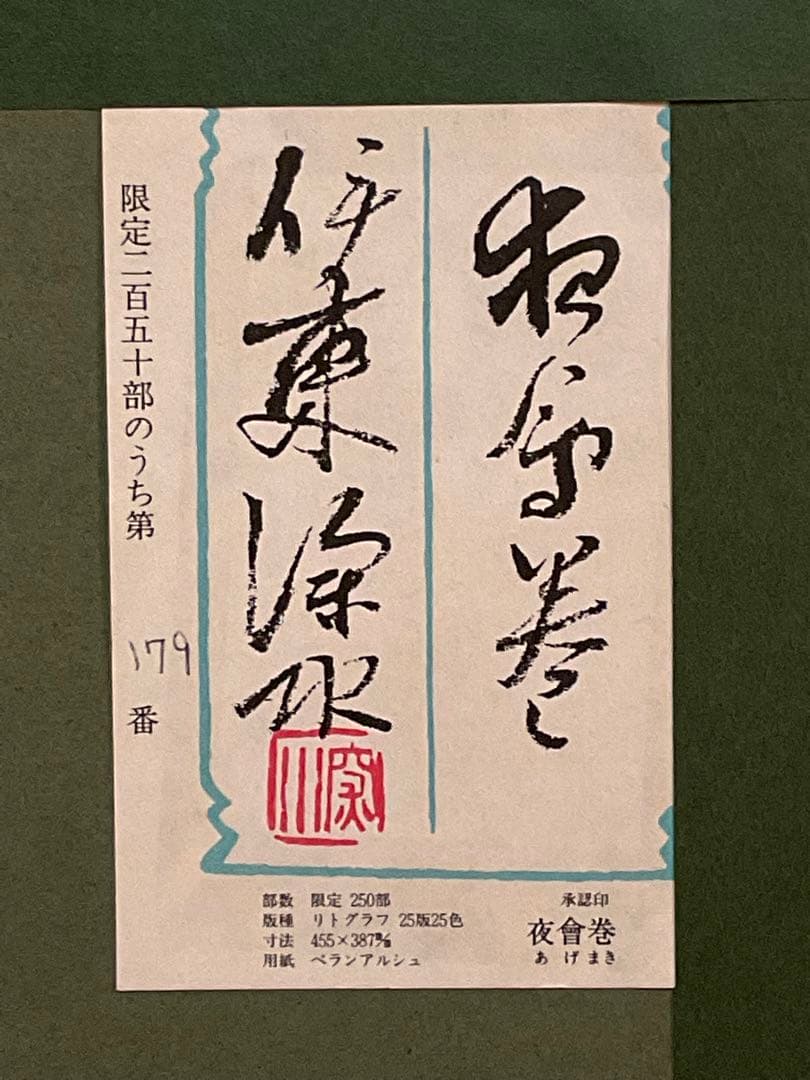 夜會巻
伊東深水
限定二百五十部のうち第
179
番
部数 限定 250部
版種 リトグラフ 25版25色
寸法 455×387㎜
用紙 ベランアルシュ
承認印
夜會巻
あげまき